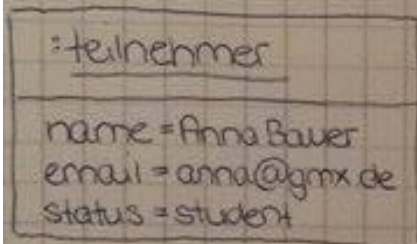 :teilnehmer
name = Anna Bauer
email = anna@gmx de
status = student